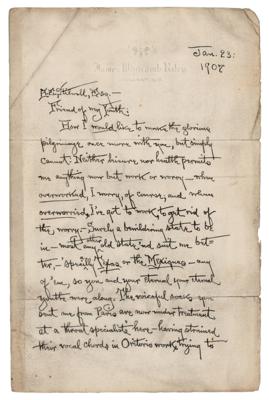 James Whitcomb Riley
Jan. 23:
1907
Esq.—
Friend of my Youth:
How I would like to make the glorious
pilgrimage once more with you, but simply
cannot: Neither leisure, nor health permits
me anything now but work or worry—when
overworked, I worry, of course, and when
overworried, I've got to work to get rid of
the worry.—Surely a building state to be
in—most any old state'ud suit me bet-
ter,—'specially Texas or the Mexiques—any
of 'em, so you and your eternal
youth were along. The voiceful
from Paris are now under treatment
at a throat specialists here—having strained
their vocal chords in Oritorio work, trying to